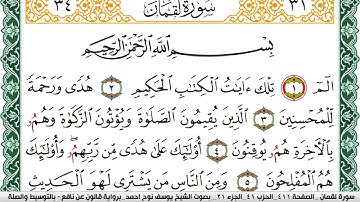 ٣١ سُورَةُ لُقْمَانَ ٣٤
بِسْمِ اللَّهِ الرَّحْمَٰنِ الرَّحِيمِ
أَلَٓمِّٓ ١ تِلْكَ ءَايَٰتُ الْكِتَٰبِ الْحَكِيمِ ٢ هُدًى وَرَحْمَةً
لِّلْمُحْسِنِينَ ٣ الَّذِينَ يُقِيمُونَ الصَّلَوٰةَ وَيُؤْتُونَ الزَّكَوٰةَ وَهُمُۥ
بِالْأَخِرَةِ هُمُۥ يُوقِنُونَ ٤ أُوْلَٰٓئِكَ عَلَىٰ هُدًى مِّن رَّبِّهِمُۥ وَأُوْلَٰٓئِكَ
هُمُ الْمُفْلِحُونَ ٥ وَمِنَ النَّاسِ مَنْ يَشْتَرِى لَهْوَ الْحَدِيثِ
سورة لقمان الصفحة ٤١١ الحزب ٤١ الجزء ٢١ بصوت الشيخ يوسف نوح احمد برواية قالون عن نافع - بالتوسيط والصلة